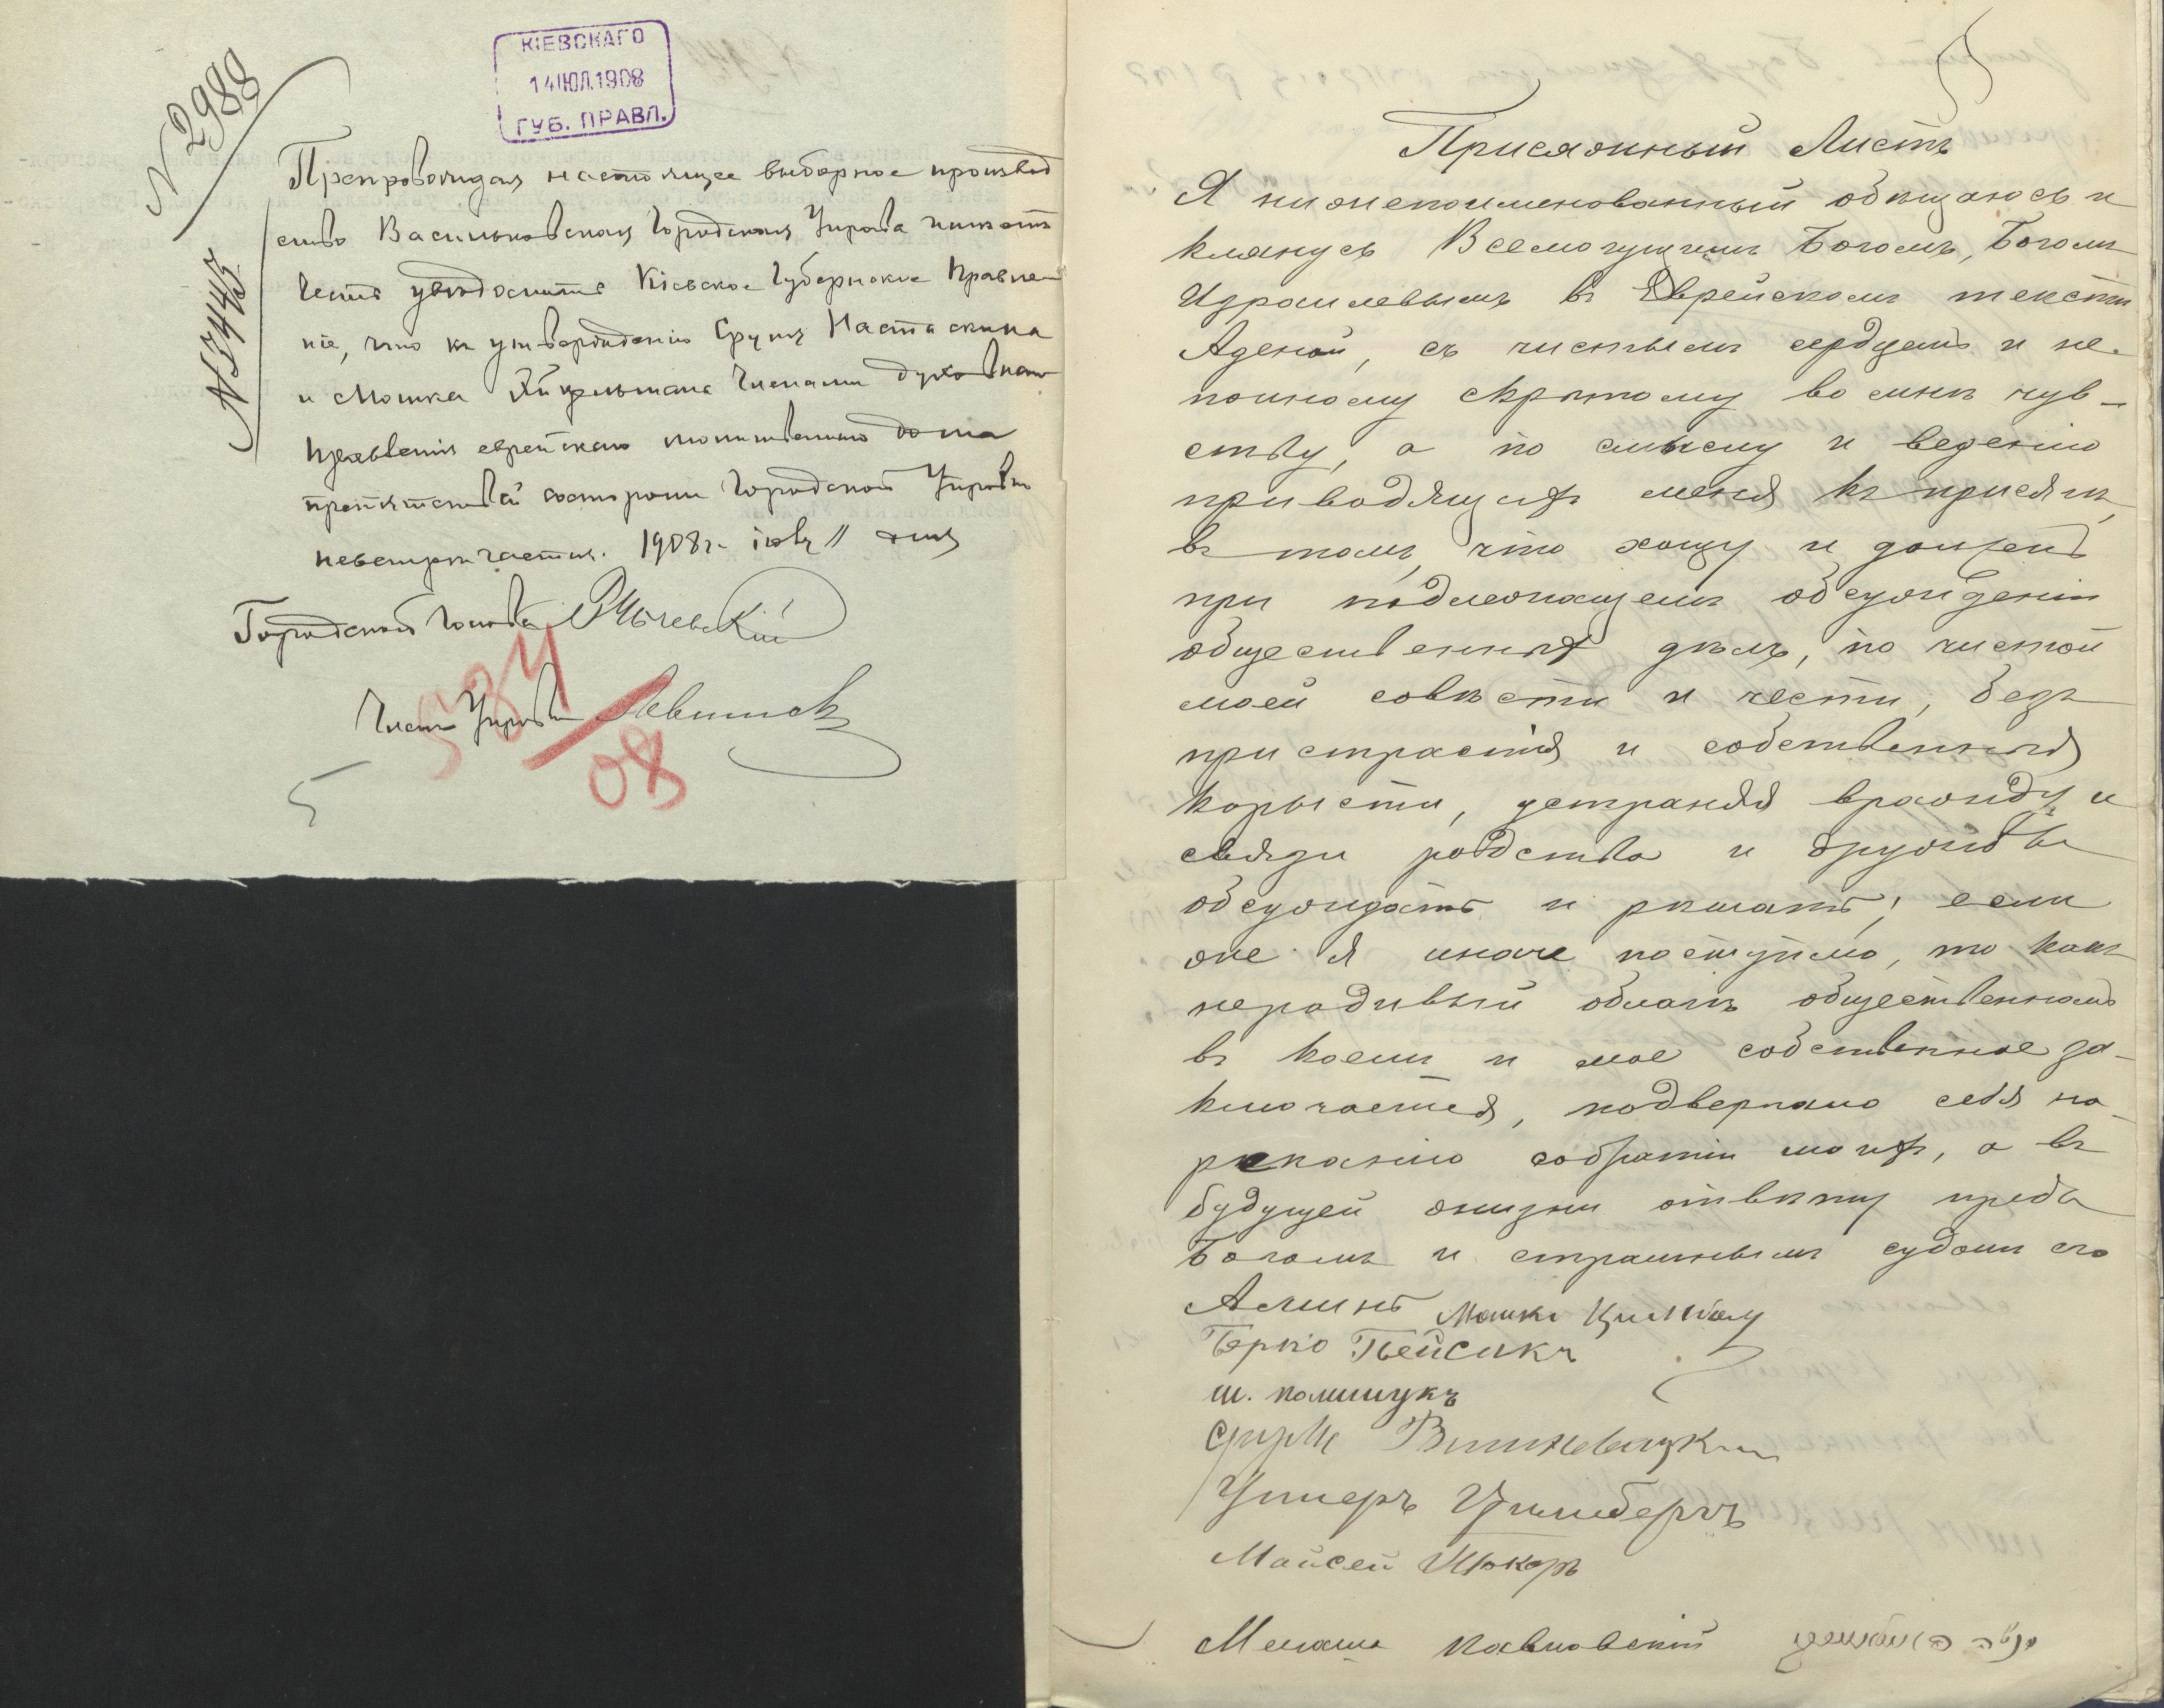 КІЕВСКАГО
14 ІЮЛ. 1908
ГУБ. ПРАВЛ.
N 2988
N 3445
Препровождая настоящее выборное производ
ство Васильковская Городская Управа имѣетъ
честь увѣдомить Кіевское Губернское Правле-
ніе, что къ утвержденію Сруля
и Мошка членами духовнаго
правленія еврейскаго молитвеннаго дома
препятствій состороны Городской Управы
невстрѣчается. 1908 г. іюля 11 дня
Городской Голова
Членъ Управы
584
08
5
5
Присяжный Листъ
Я нижепоименованный обѣщаюсь и
клянусь Всемогущимъ Богомъ, Богомъ
Израилевымъ въ Еврейскомъ текстѣ
Аденой, съ чистымъ сердцемъ и не
поиному скрытому во мнѣ чув-
ству, а по смыслу и веденію
приводящихъ меня къ присягѣ,
въ томъ, что хощу и долженъ
при подлежащемъ обсужденіи
общественныхъ дѣлъ, по чистой
моей совѣсти и чести, безъ
пристрастія и собственныя
корысти, устраняя вражду и
связи родства и дружбы
обсуждать и рѣшать; если
же я иначе поступлю, то какъ
нерадивый облагѣ общественномъ
въ коемъ и мое собственное за-
ключается, подвергаю себя на-
рѣканію собратіи моихъ, а въ
будущей жизни отвѣту предъ
Богомъ и страшнымъ судомъ его
Аминь Мошко
Берко Пейсикъ
ш. полищукъ
Сруль Вишневецкій
Цимбергъ
Майсей Цукеръ
Менаше